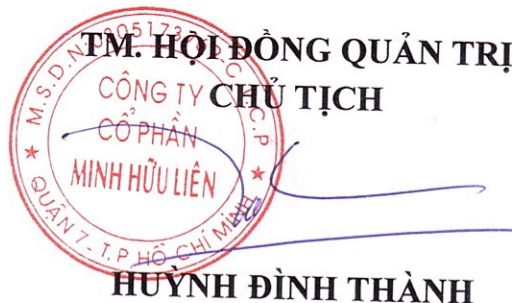 TM. HỘI ĐỒNG QUẢN TRỊ
CHỦ TỊCH
CÔNG TY
CỔ PHẦN
MINH HỮU LIÊN
QUẬN 7 - T.P HỒ CHÍ MINH
HUỲNH ĐÌNH THÀNH